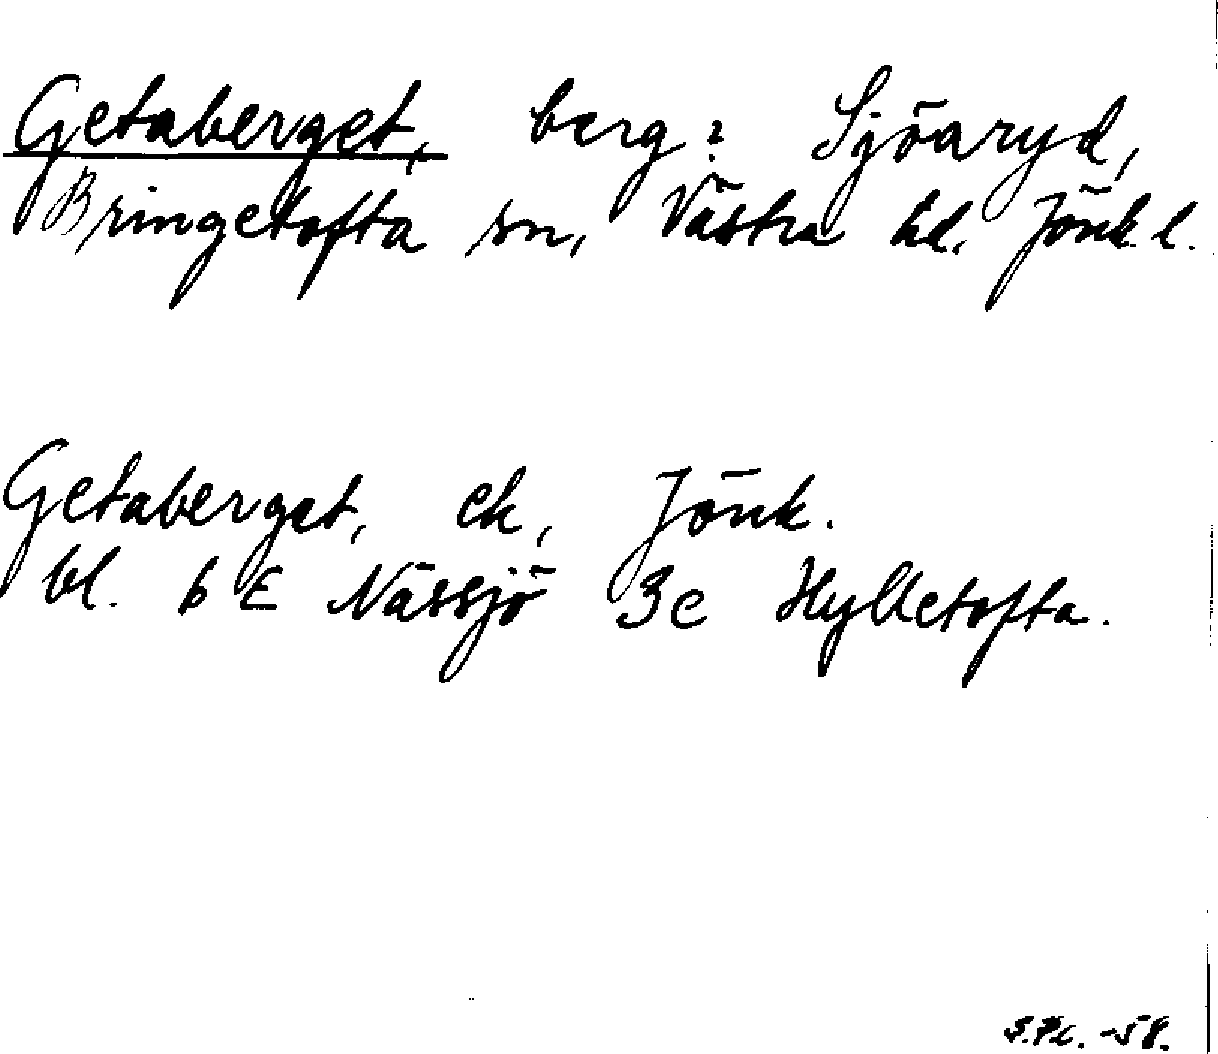 Getaberget, berg: Sjöaryd,
Bringetofta sn, Västra hd. Jönk. l.
Getaberget, ek, Jönk.
bl. 6 E Nässjö 3c Hylletofta.
-58.